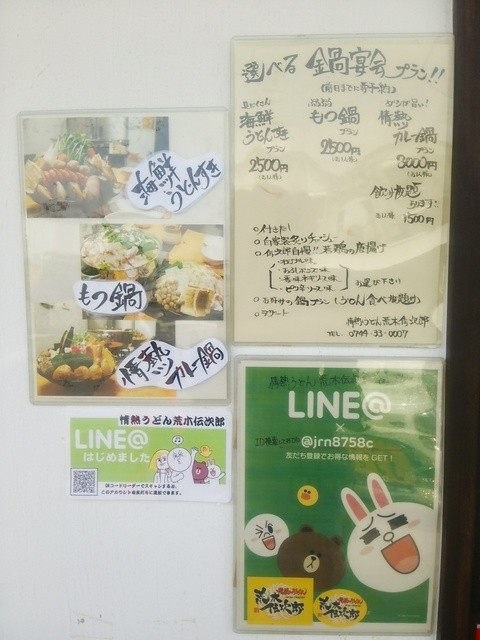 選べる 鍋宴会 プラン!!
(前日までに要予約)
海鮮
うどんすき
プラン
2500円
もつ鍋
プラン
2500円
情熱
カレー鍋
プラン
3000円
飲み放題
1500円
○付きだし
○自家製炙りチャーシュー
○伝次郎自慢!!若鶏の唐揚げ
○お好みの鍋プラン(うどん食べ放題付)
○デザート
情熱うどん荒木伝次郎
TEL. 0744-33-0007
海鮮
うどんすき
もつ鍋
情熱
カレー鍋
情熱うどん荒木伝次郎
LINE@
はじめました
QRコードリーダーでスキャンすると、
このアカウントを友だちに追加できます。
情熱うどん荒木伝次郎
LINE@
×
ID検索してみてね
@jrn8758c
友だち登録でお得な情報をGET!
荒木伝次郎
荒木伝次郎